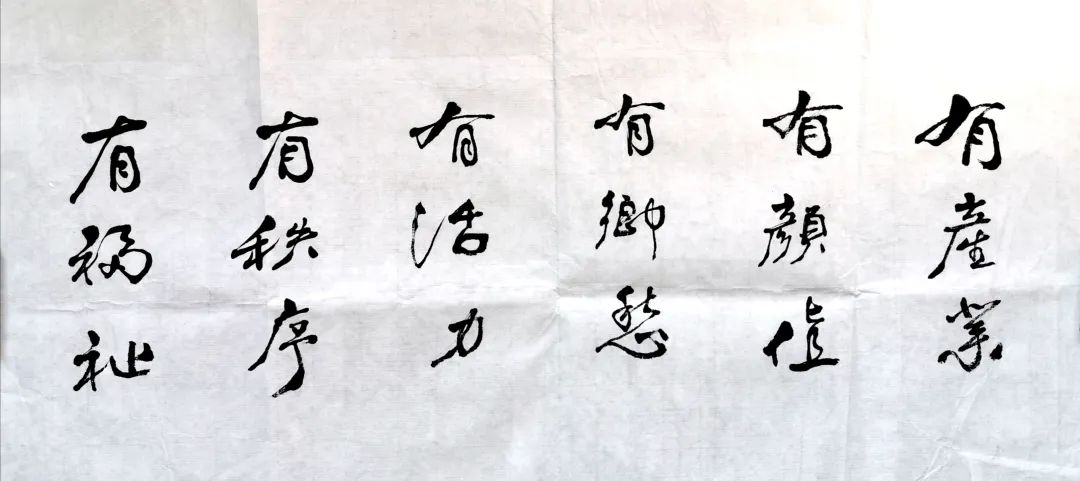 有產業
有顏值
有鄉愁
有活力
有秩序
有福祉